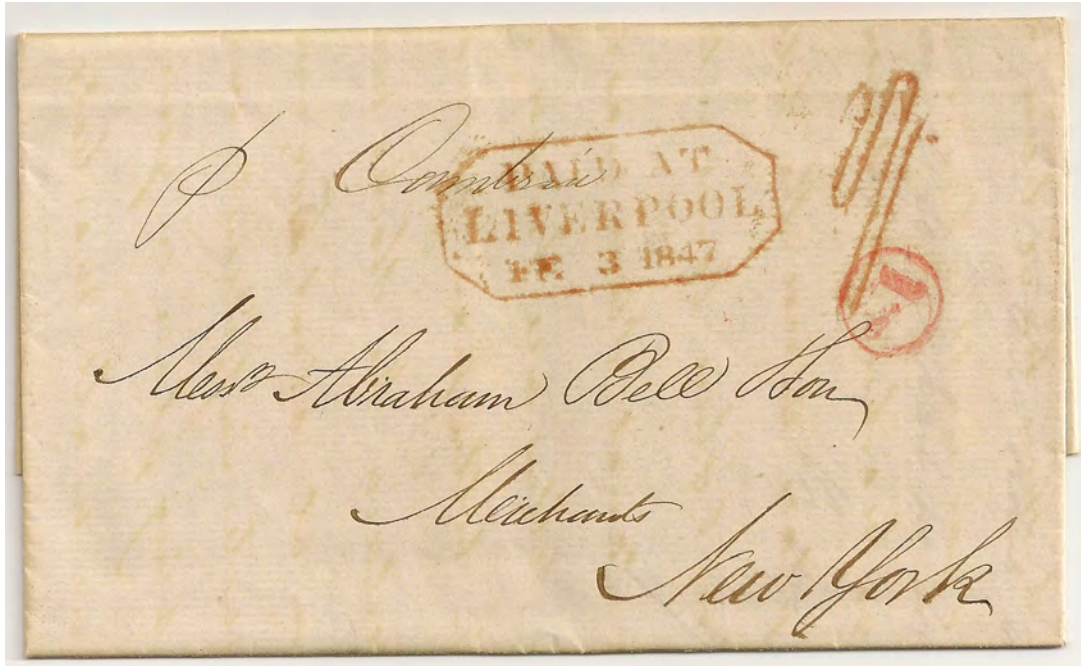 p Cambria
PAID AT
LIVERPOOL
FE 3 1847
Messrs Abraham Bell & Son
Merchants
New York